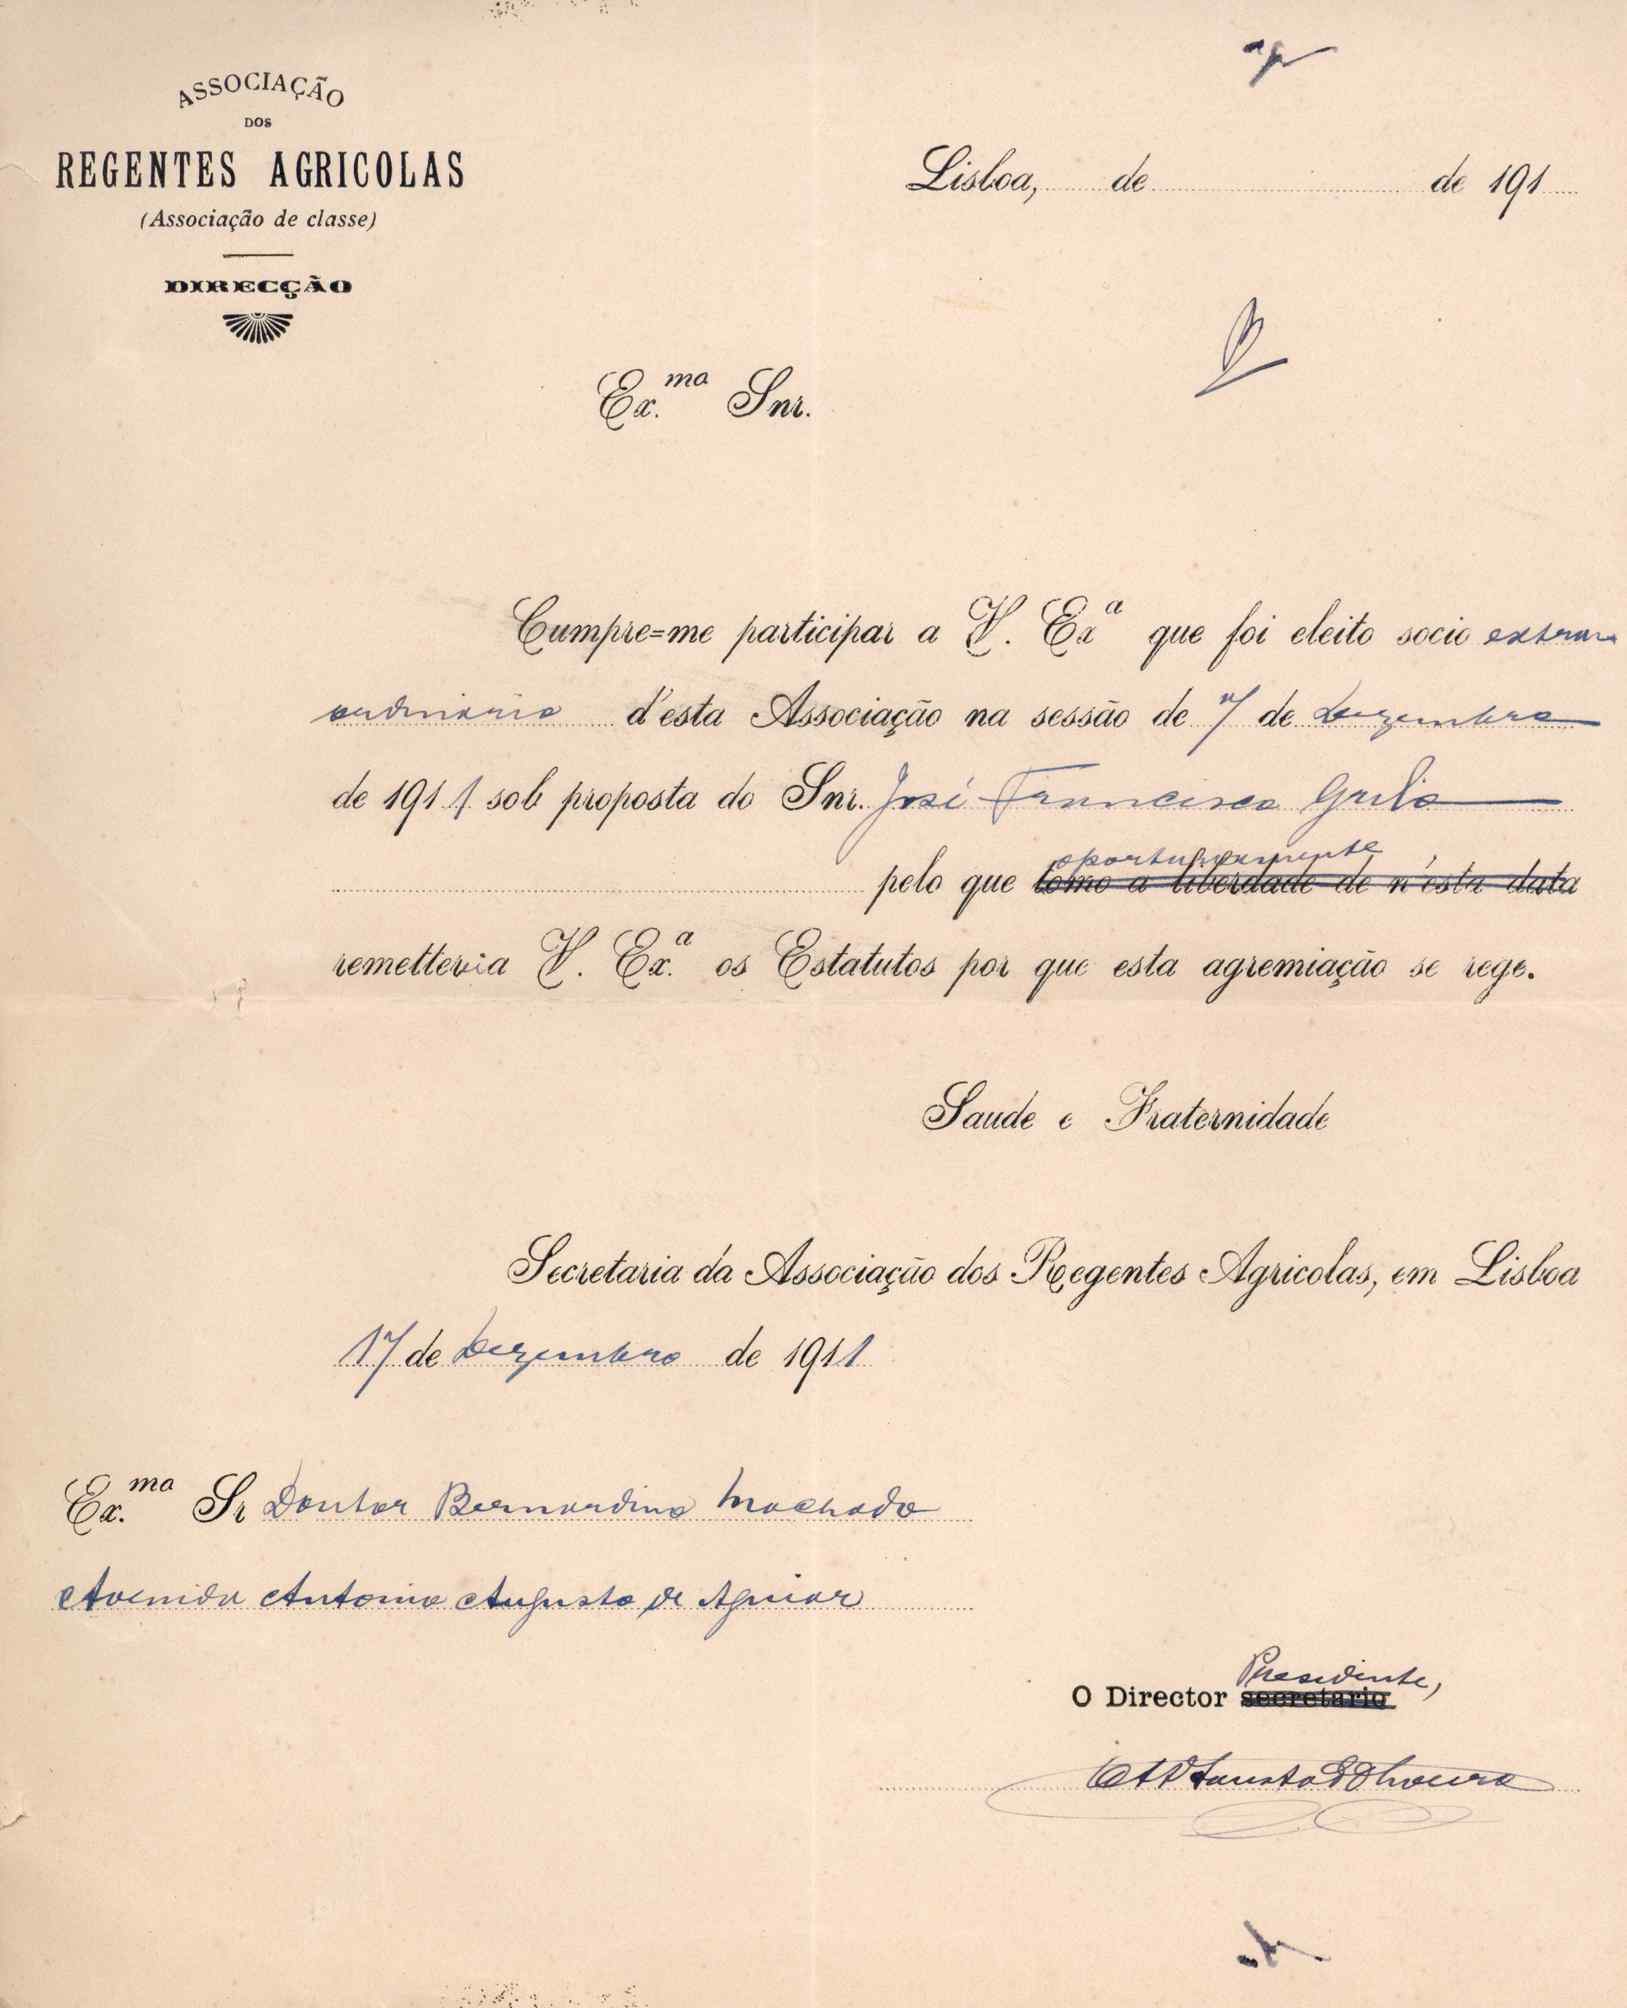 ASSOCIAÇÃO
DOS
REGENTES AGRICOLAS
(Associação de classe)
DIRECÇÃO
Lisboa, de de 191
Ex.ma Snr.
Cumpre=me participar a V. Exa que foi eleito socio extra
ordinario d'esta Associação na sessão de 7 de Dezembro
de 1911 sob proposta do Snr. José Francisco Grilo
oportunamente
pelo que tomo a liberdade de n'ésta data
remetteria V. Ex.a os Estatutos por que esta agremiação se rege.
Saude e Fraternidade
Secretaria da Associação dos Regentes Agricolas, em Lisboa
17 de Dezembro de 1911
Ex.ma Sr Doutor Bernardino Machado
Avenida Antonio Augusto de Aguiar
Presidente,
O Director secretario